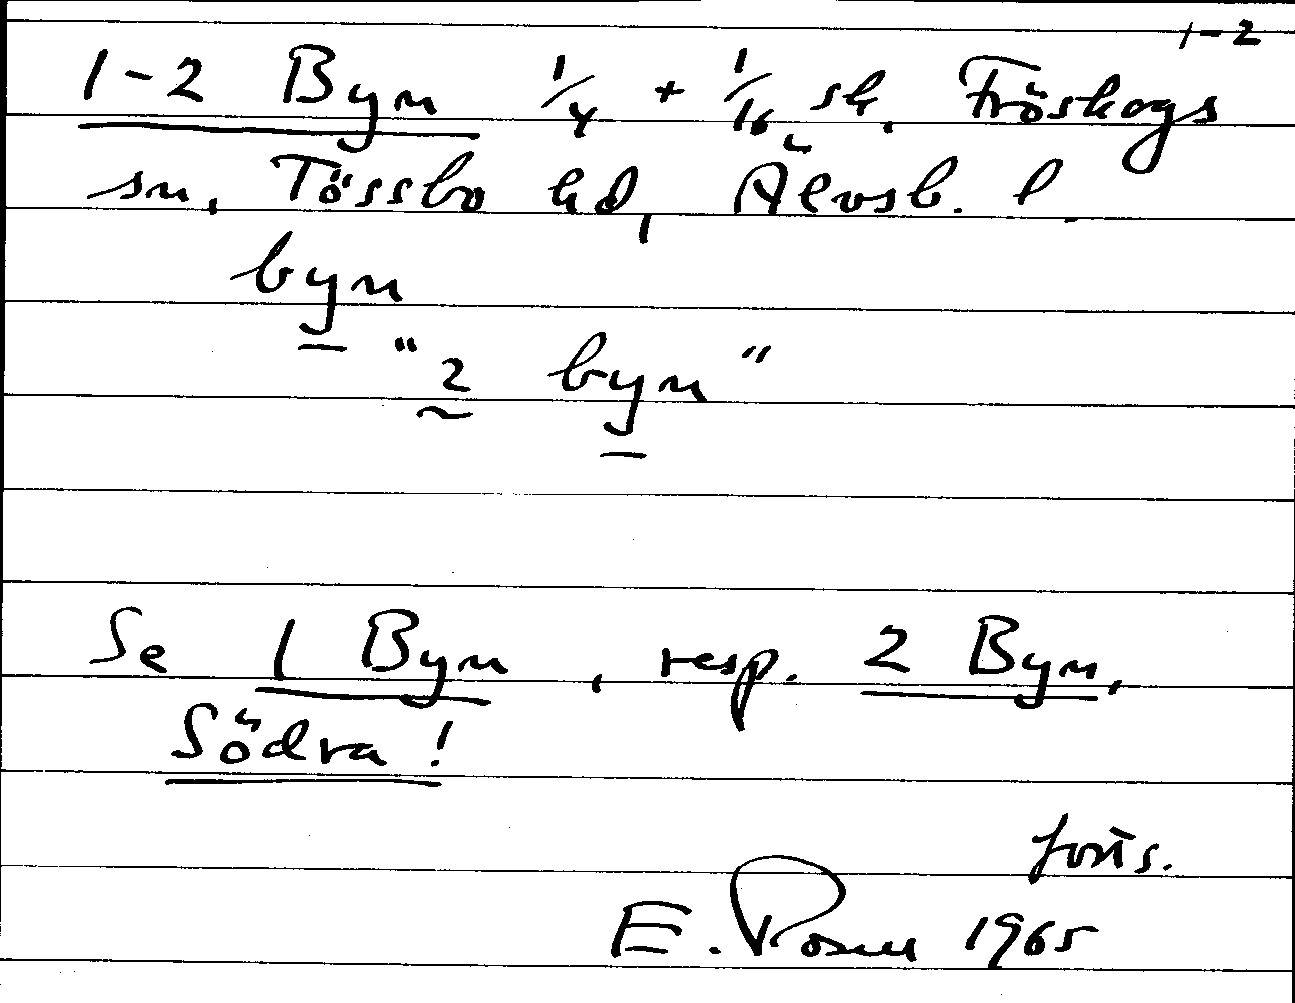 1-2
1-2 Byn 1/4 + 1/16 sk. Fröskogs
sn, Tössbo hd, Älvsb. l.
byn
"2 byn"
Se 1 Byn, resp. 2 Byn,
Södra!
forts.
E. Rosell 1965